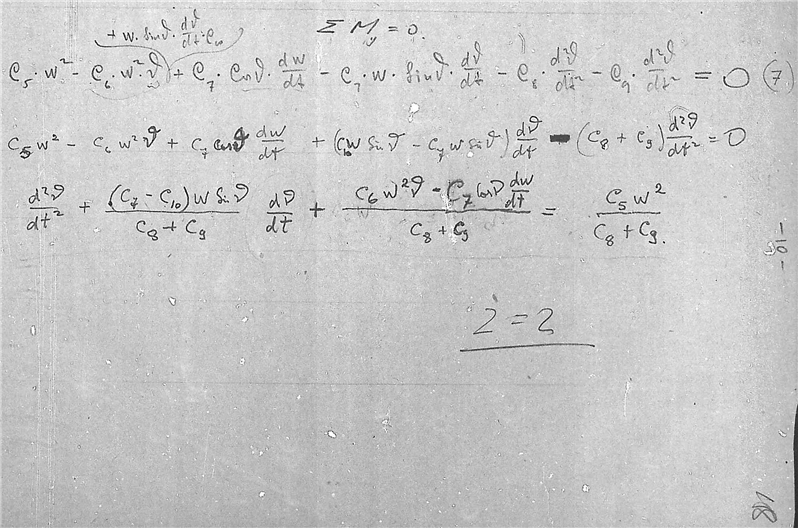 + w. sinϑ. dϑ/dt. C₁₀
Σ M_y = 0.
C₅. w² - C₆. w². ϑ + C₇. Cosϑ. dw/dt - C₇. w. Sinϑ. dϑ/dt - C₈. d²ϑ/dt² - C₉. d²ϑ/dt² = 0 (7)
C₅ w² - C₆ w² ϑ + C₇ cosϑ dw/dt + (C₁₀ w Sinϑ - C₇ w Sinϑ) dϑ/dt - (C₈ + C₉) d²ϑ/dt² = 0
d²ϑ/dt² + (C₇ - C₁₀) w Sinϑ / C₈ + C₉ dϑ/dt + C₆ w² ϑ - C₇ Cosϑ dw/dt / C₈ + C₉ = C₅ w² / C₈ + C₉.
2 = 2